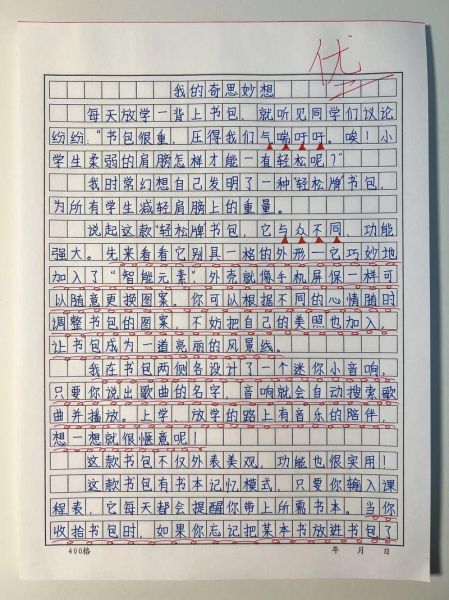 优
我的奇思妙想
每天放学一背上书包，就听见同学们议论
纷纷：“书包很重，压得我们气喘吁吁。唉！小
学生柔弱的肩膀怎样才能一有轻松呢？”
我时常幻想自己发明了一种“轻松牌”书包，
为所有学生减轻肩膀上的重量。
说起这款“轻松牌”书包，它与众不同、功能
强大。先来看看它别具一格的外形—它巧妙地
加入了“智能元素”，外壳就像手机屏保一样可
以随意更换图案。你可以根据不同的心情随时
调整书包的图案，不妨把自己的美照也加入，
让书包成为一道亮丽的风景线。
我在书包两侧各设计了一个迷你小音响，
只要你说出歌曲的名字，音响就会自动搜索歌
曲并播放。上学、放学的路上有音乐的陪伴，
想一想就很惬意呢！
这款书包不仅外表美观，功能也很实用！
这款书包有书本记忆模式，只要你输入课
程表，它每天都会提醒你带上所需书本。当你
收拾书包时，如果你忘记把某本书放进书包了
400格 年 月 日